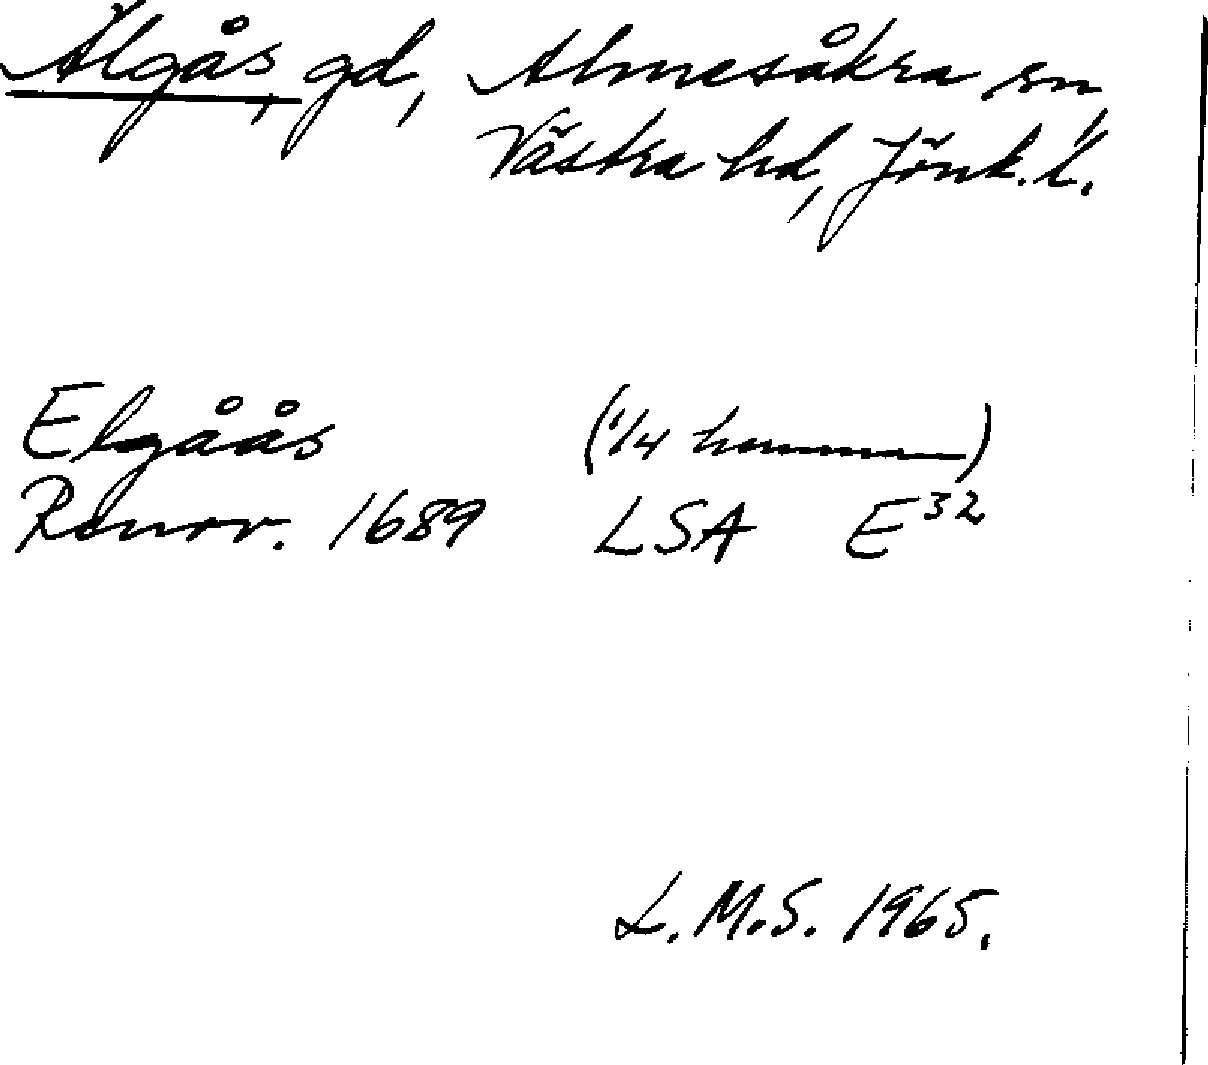 Älgås, gd, Almesåkra sn,
Västra hd, Jönk. l.
Elgåås (1/4 hemman)
Renov. 1689 LSA E32
L.M.S. 1965.